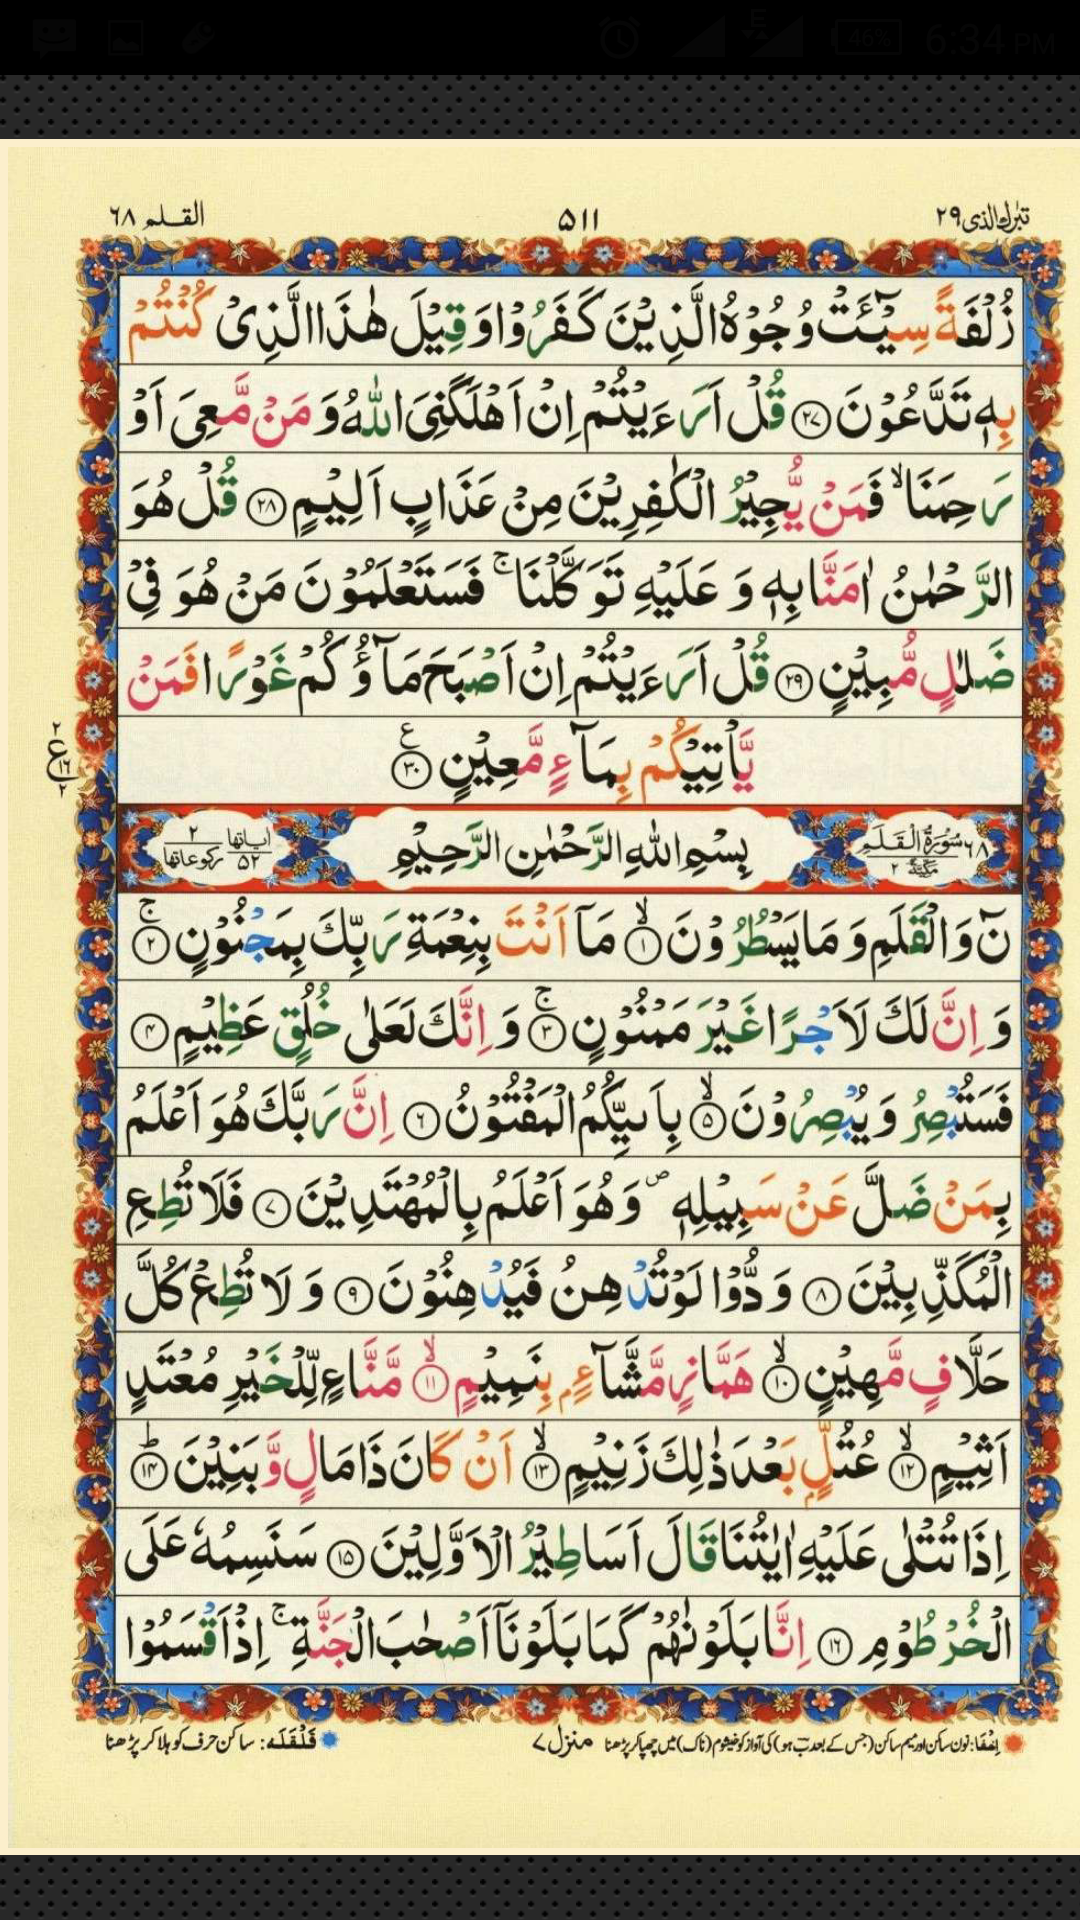 6:34 PM
46%
E
تبٰرك الذی ٢٩
٥١١
القلم ٦٨
زُلْفَةً سِيْٓئَتْ وُجُوْهُ الَّذِيْنَ كَفَرُوْا وَقِيْلَ هٰذَا الَّذِيْ كُنْتُمْ
بِهٖ تَدَّعُوْنَ ﴿٢٧﴾ قُلْ اَرَءَيْتُمْ اِنْ اَهْلَكَنِيَ اللّٰهُ وَ مَنْ مَّعِيَ اَوْ
رَحِمَنَا ۙ فَمَنْ يُّجِيْرُ الْكٰفِرِيْنَ مِنْ عَذَابٍ اَلِيْمٍ ﴿٢٨﴾ قُلْ هُوَ
الرَّحْمٰنُ اٰمَنَّا بِهٖ وَ عَلَيْهِ تَوَكَّلْنَا ۚ فَسَتَعْلَمُوْنَ مَنْ هُوَ فِيْ
ضَلٰلٍ مُّبِيْنٍ ﴿٢٩﴾ قُلْ اَرَءَيْتُمْ اِنْ اَصْبَحَ مَآؤُكُمْ غَوْرًا فَمَنْ
يَّاْتِيْكُمْ بِمَآءٍ مَّعِيْنٍ ﴿٣٠﴾ ع
٢ ع ١٦ ٢
٦٨ سُوْرَةُ الْقَلَمِ مَكِّيَّةٌ ٢
بِسْمِ اللّٰهِ الرَّحْمٰنِ الرَّحِيْمِ
اٰیاتها ٥٢ ركوعاتها ٢
نٓ وَالْقَلَمِ وَ مَا يَسْطُرُوْنَ ﴿١﴾ۙ مَآ اَنْتَ بِنِعْمَةِ رَبِّكَ بِمَجْنُوْنٍ ﴿٢﴾ۚ
وَ اِنَّ لَكَ لَاَجْرًا غَيْرَ مَمْنُوْنٍ ﴿٣﴾ۚ وَ اِنَّكَ لَعَلٰى خُلُقٍ عَظِيْمٍ ﴿٤﴾
فَسَتُبْصِرُ وَ يُبْصِرُوْنَ ﴿٥﴾ۙ بِاَىيِّكُمُ الْمَفْتُوْنُ ﴿٦﴾ اِنَّ رَبَّكَ هُوَ اَعْلَمُ
بِمَنْ ضَلَّ عَنْ سَبِيْلِهٖ ۪ وَ هُوَ اَعْلَمُ بِالْمُهْتَدِيْنَ ﴿٧﴾ فَلَا تُطِعِ
الْمُكَذِّبِيْنَ ﴿٨﴾ وَدُّوْا لَوْ تُدْهِنُ فَيُدْهِنُوْنَ ﴿٩﴾ وَ لَا تُطِعْ كُلَّ
حَلَّافٍ مَّهِيْنٍ ﴿١٠﴾ۙ هَمَّازٍ مَّشَّآءٍۭ بِنَمِيْمٍ ﴿١١﴾ۙ مَّنَّاعٍ لِّلْخَيْرِ مُعْتَدٍ
اَثِيْمٍ ﴿١٢﴾ۙ عُتُلٍّۭ بَعْدَ ذٰلِكَ زَنِيْمٍ ﴿١٣﴾ۙ اَنْ كَانَ ذَا مَالٍ وَّ بَنِيْنَ ﴿١٤﴾ؕ
اِذَا تُتْلٰى عَلَيْهِ اٰيٰتُنَا قَالَ اَسَاطِيْرُ الْاَوَّلِيْنَ ﴿١٥﴾ سَنَسِمُهٗ عَلَى
الْخُرْطُوْمِ ﴿١٦﴾ اِنَّا بَلَوْنٰهُمْ كَمَا بَلَوْنَآ اَصْحٰبَ الْجَنَّةِ ۚ اِذْ اَقْسَمُوْا
اِخفَا: نون ساکن اور میم ساکن (جس کے بعد ب ہو) کی آواز کو خیشوم (ناک) میں چھپا کر پڑھنا
منزل ٧
قَلْقَلَه: ساکن حرف کو ہلا کر پڑھنا